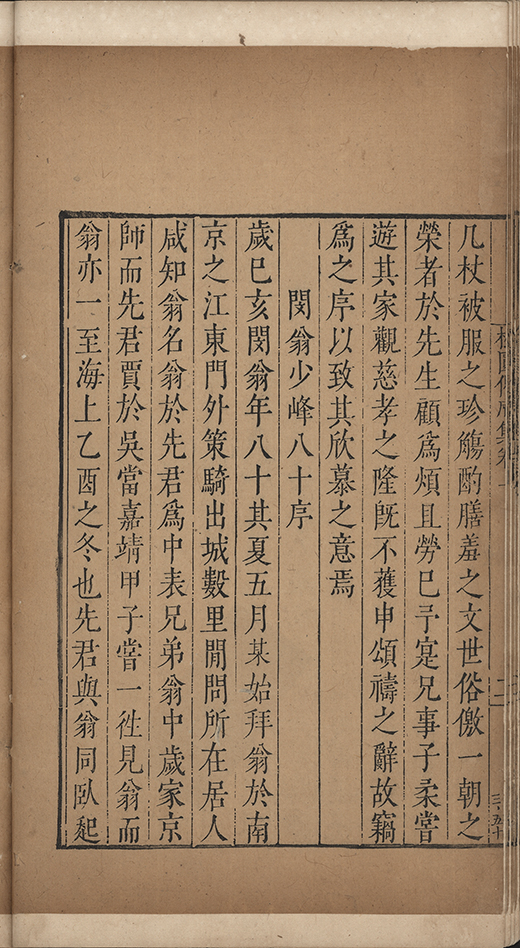 几杖被服之珍觴酌膳羞之文世俗儌一朝之
榮者於先生顧爲煩且勞已予寔兄事子柔嘗
遊其家觀慈孝之隆旣不獲申頌禱之辭故竊
爲之序以致其欣慕之意焉
閔翁少峰八十序
歲巳亥閔翁年八十其夏五月某始拜翁於南
京之江東門外策騎出城數里閒問所在居人
咸知翁名翁於先君爲中表兄弟翁中歲家京
師而先君賈於吳當嘉靖甲子嘗一徃見翁而
翁亦一至海上乙酉之冬也先君與翁同臥起